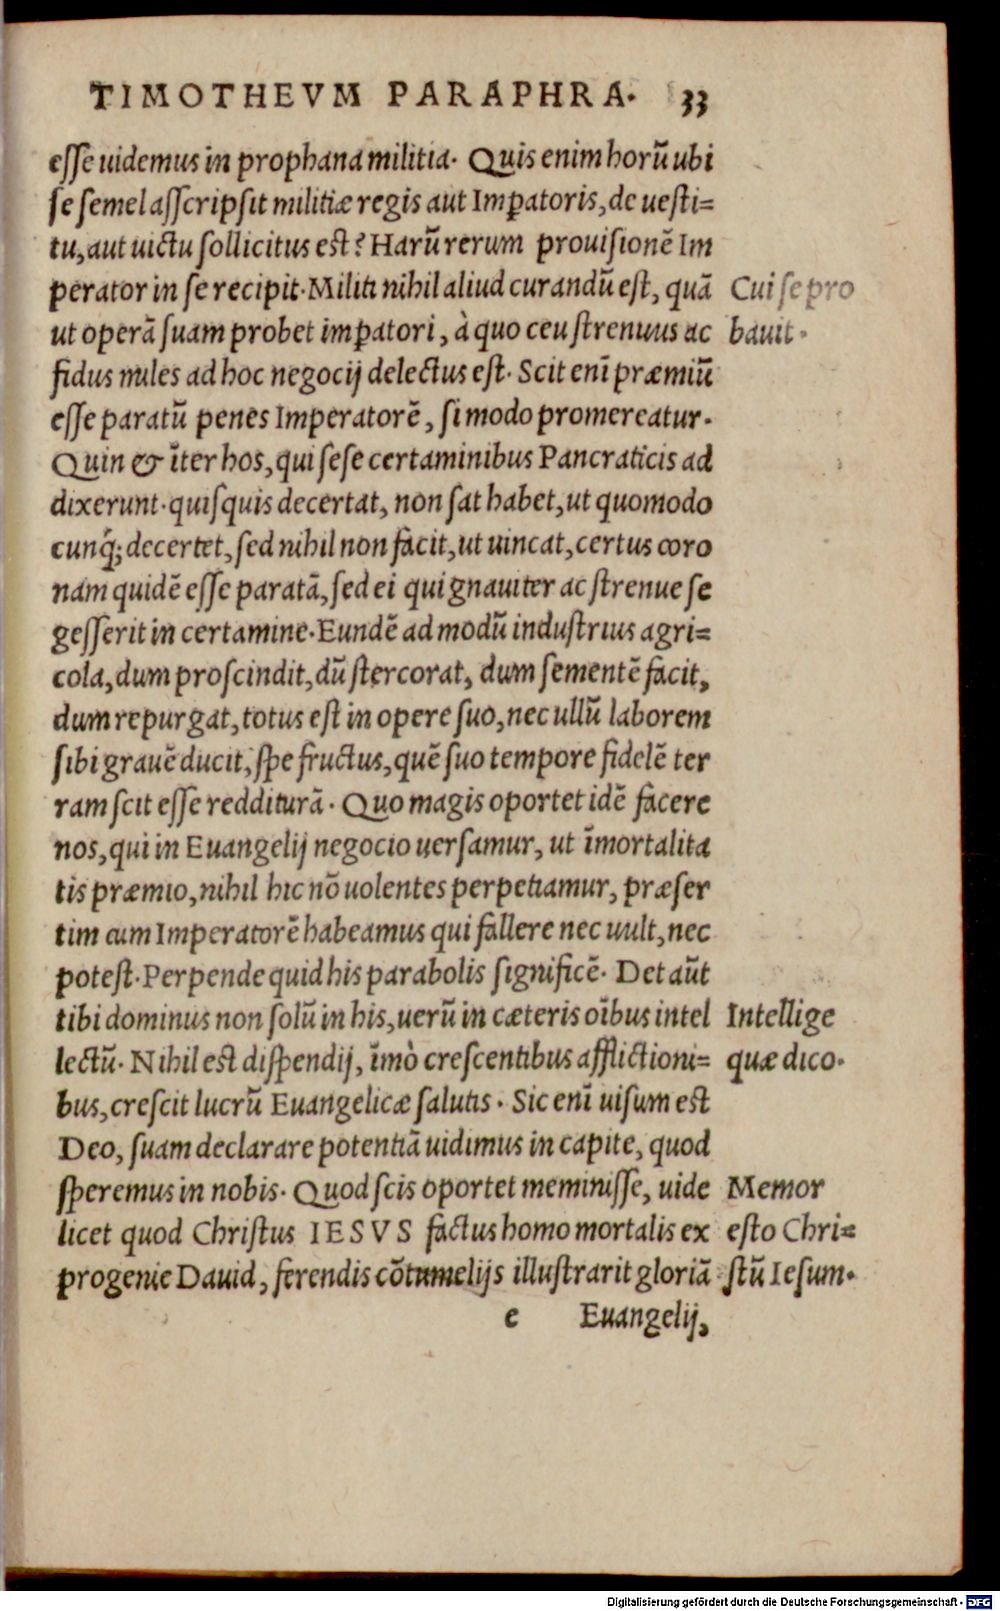 TIMOTHEVM PARAPHRA. 33
eſſe uidemus in prophana militia. Quis enim horū ubi
ſe ſemel aſſcripſit militiæ regis aut Imꝑatoris, de ueſti=
tu, aut uictu ſollicitus eſt? Harū rerum prouiſionē Im
perator in ſe recipit. Militi nihil aliud curandū eſt, quā
Cui ſe pro
ut operā ſuam probet imꝑatori, à quo ceu ſtrenuus ac
bauit.
fidus miles ad hoc negocij delectus eſt. Scit enī præmiū
eſſe paratū penes Imperatorē, ſi modo promereatur.
Quin & īter hos, qui ſeſe certaminibus Pancraticis ad
dixerunt. quiſquis decertat, non ſat habet, ut quomodo
cunq́; decertet, ſed nihil non facit, ut uincat, certus coro
nam quidē eſſe paratā, ſed ei qui gnauiter ac ſtrenue ſe
geſſerit in certamine. Eundē ad modū induſtrius agri=
cola, dum proſcindit, dū ſtercorat, dum ſementē facit,
dum repurgat, totus eſt in opere ſuo, nec ullū laborem
ſibi grauē ducit, ſpe fructus, quē ſuo tempore fidelē ter
ram ſcit eſſe redditurā. Quo magis oportet idē facere
nos, qui in Euangelij negocio uerſamur, ut īmortalita
tis præmio, nihil hic nō uolentes perpetiamur, præſer
tim cum Imperatorē habeamus qui fallere nec uult, nec
poteſt. Perpende quid his parabolis ſignificē. Det aūt
tibi dominus non ſolū in his, uerū in cæteris oībus intel
Intellige
lectū. Nihil eſt diſpendij, īmò creſcentibus afflictioni=
quæ dico.
bus, creſcit lucrū Euangelicæ ſalutis. Sic enī uiſum eſt
Deo, ſuam declarare potentiā uidimus in capite, quod
ſperemus in nobis. Quod ſcis oportet meminiſſe, uide
Memor
licet quod Chriſtus IESVS factus homo mortalis ex
eſto Chri=
progenie Dauid, ferendis cōtumelijs illuſtrarit gloriā
ſtū Ieſum.
e Euangelij,
Digitalisierung gefördert durch die Deutsche Forschungsgemeinschaft - DFG